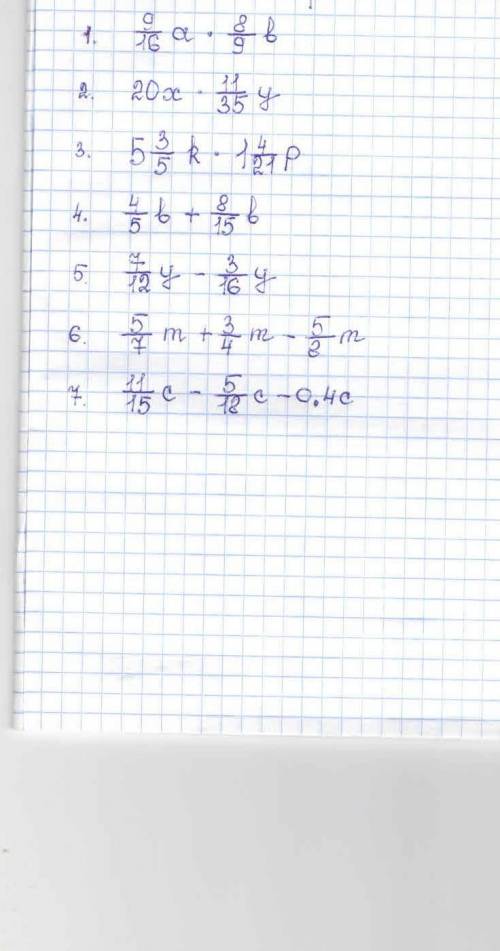 1. 9/16 a · 8/9 b
2. 20x · 11/35 y
3. 5 3/5 k · 1 4/21 p
4. 4/5 b + 8/15 b
5. 7/12 y - 3/16 y
6. 5/7 m + 3/4 m - 5/8 m
7. 11/15 c - 5/18 c - 0.4c